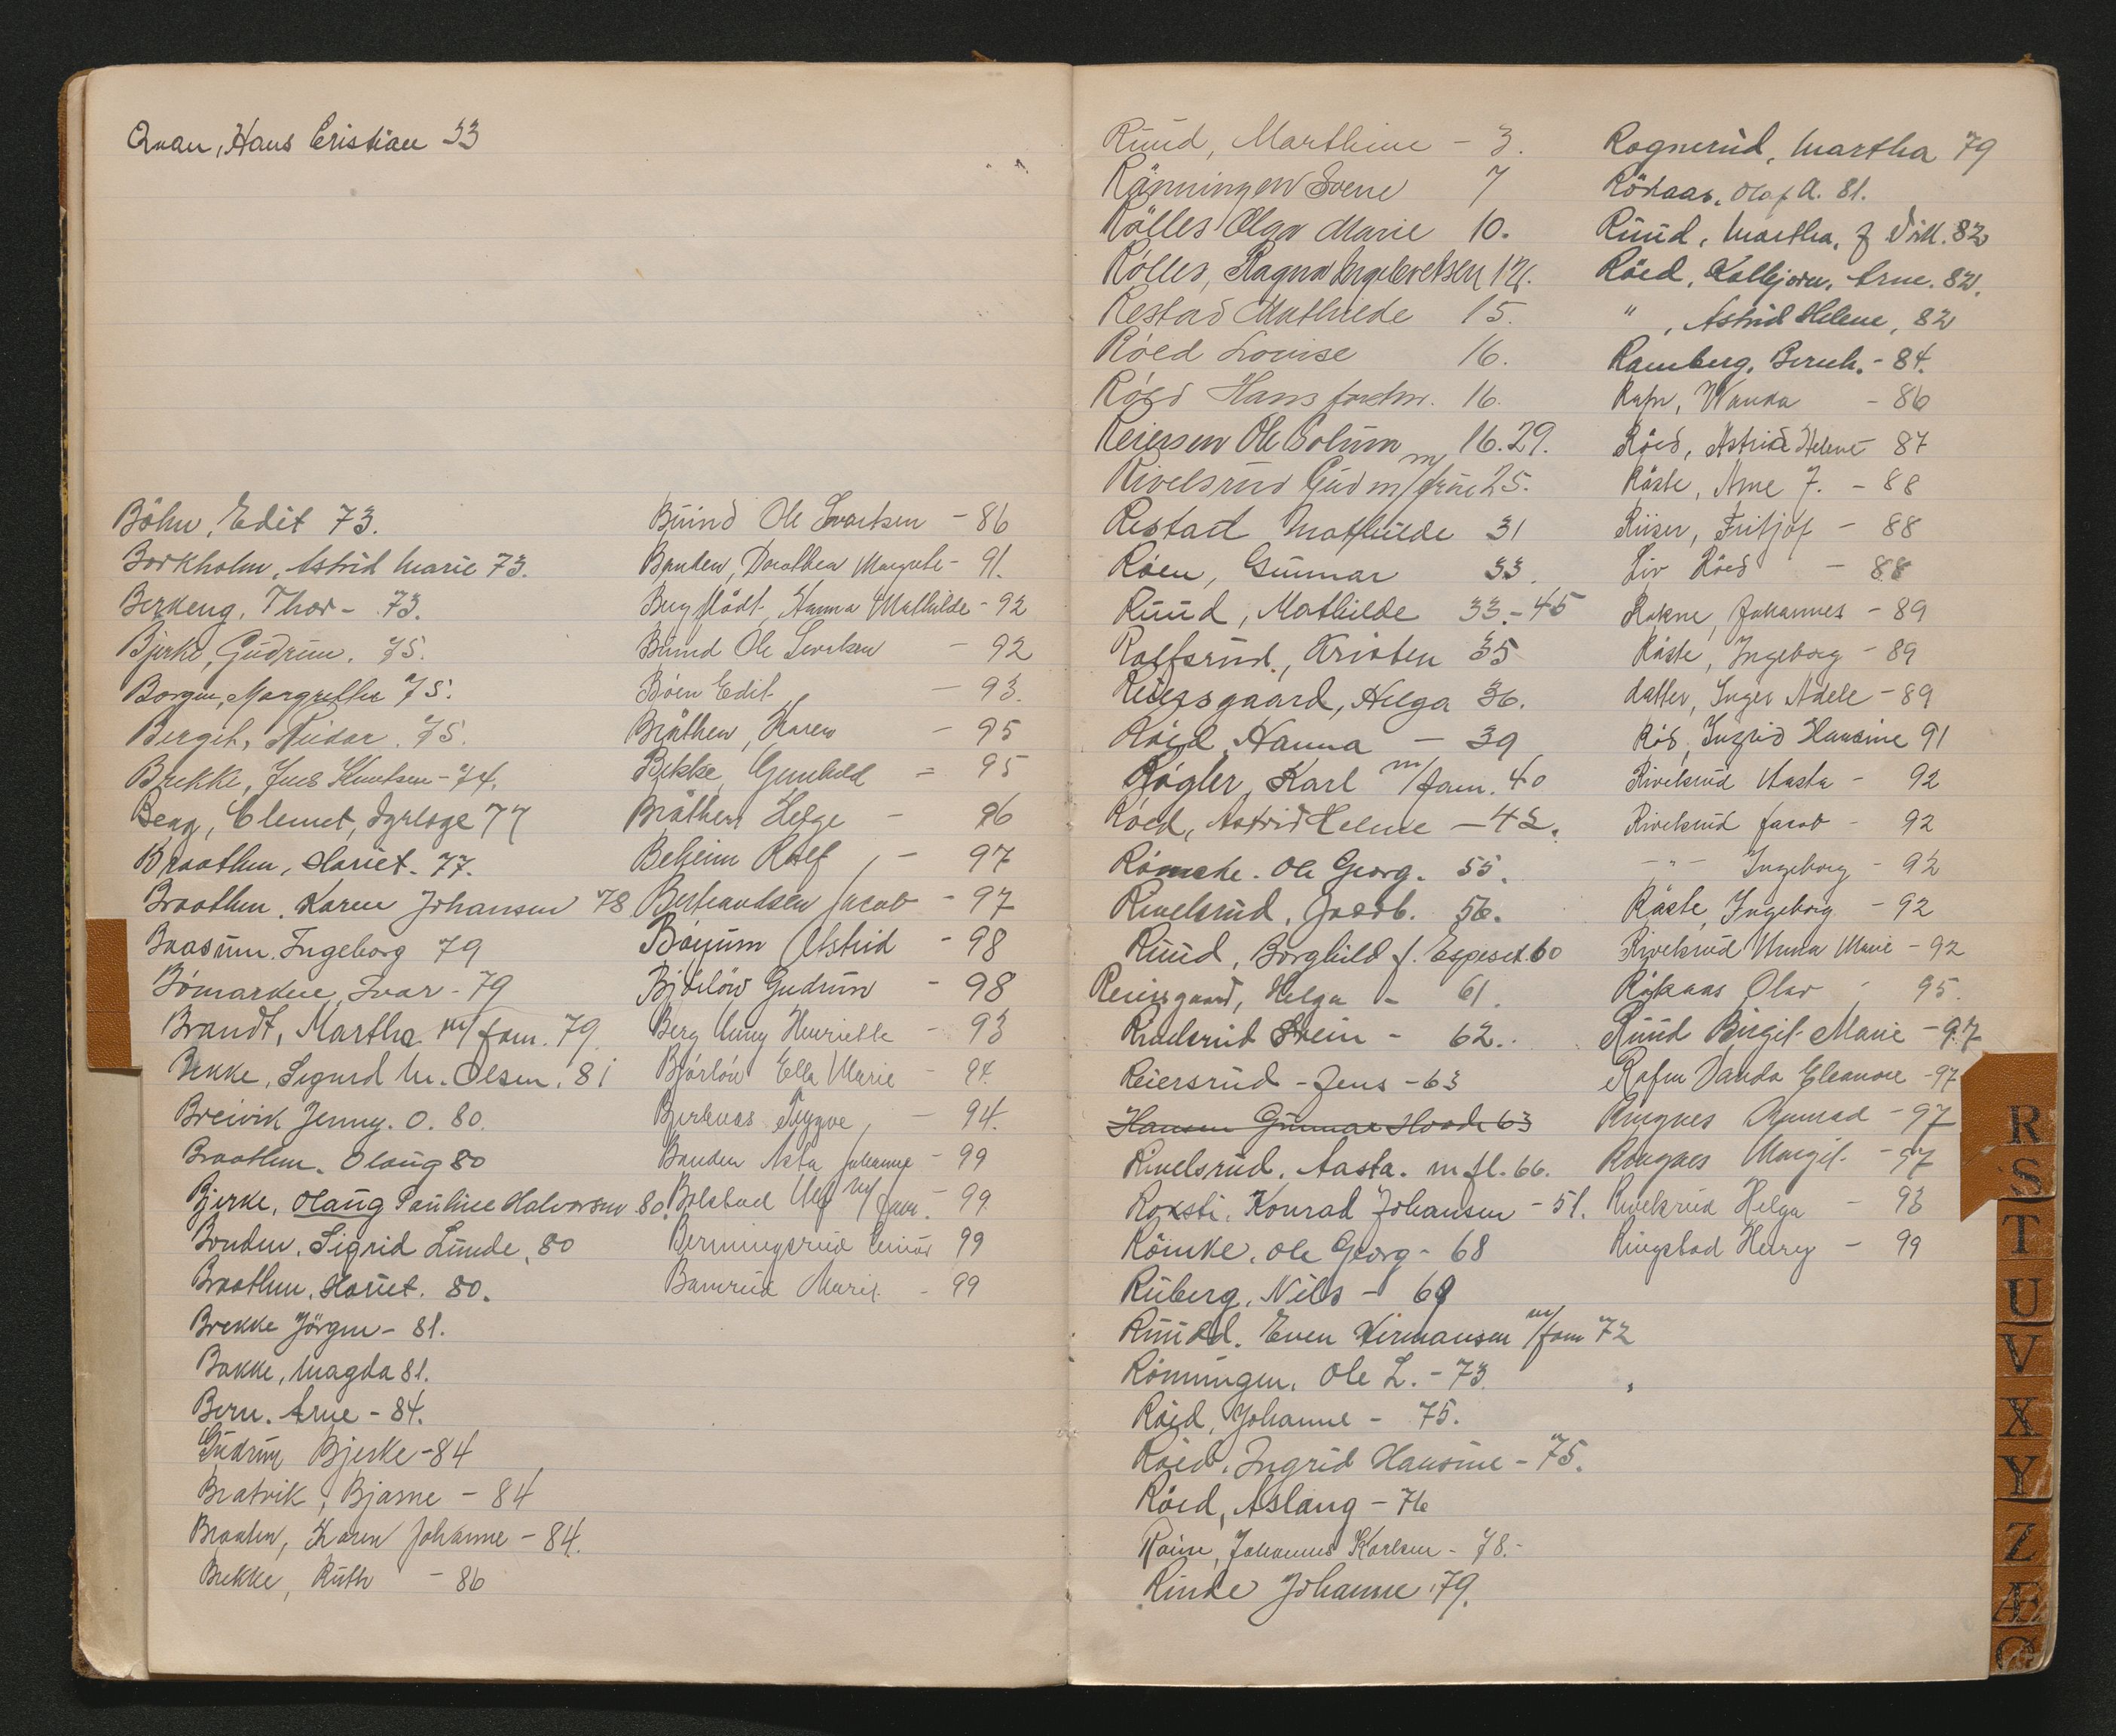 Qvan, Hans Cristian 33
Böhn, Edit 73.
Borkholm, Astrid Marie 73.
Berkeng, Thor - 73.
Bjerke, Gudrun. 75.
Borgen, Margrethe 75.
Bergit, Nidar. 75.
Brekke, Jens Knutsen - 74.
Berg, Clemet, 77
Braathen, Hariet. 77.
Braathen. Karen Johansen 78
Baasum. Ingeborg 79
Bömarken, Ivar - 79
Brandt, Martha m/fam. 79
Bekke, Sigurd M. Olsen. 81
Breivik Jenny. O. 80.
Braathen. Olaug 80
Bjerke, Olaug Pauline Halvorsen 80.
Bonden. Sigrid Lunde, 80
Braathen. Hariet. 80.
Brekke Jörgen - 81.
Bakke, Magda 81.
Bern. Arne - 84.
Gudrun Bjerke - 84
Bratvik, Bjarne - 84
Braaten, Karen Johanne - 84.
Brekke, Ruth - 86
Buind Ole Svartsen - 86
Banden, Dorothea Margrete - 91.
Bugflödt, Hanna Mathilde - 92
Buind Ole - 92
Böen Edit - 93.
Bråthen, Karen - 95
Bekke, Gunhild = 95
Bråthen Helge - 96
Beheim Rolf, - 97
Bertrandsen Jacob - 97
Böyum Astrid - 98
Bjorlöw Gudrun - 98
Berg Unny Henriette - 93
Bjórlów Ella Marie - 94
Bjerknes Trygve, - 94.
Banden Asta Johanne - 99
Bolstad Ulf m/fam. - 99
Berningsrud Einar 99
Bamrud Marit - 99
Ruud, Marthine - 3.
Ränningen Svene 7
Rölles Olga Marie 10.
Rölles, Ragna Ingebretsen 12.
Restad Mathilde 15.
Róed Lovise 16.
Róed Hans fordm. 16.
Reiersen Ole Solum 16.29.
Rivelsrud Gud m/frue 25.
Restad Mathilde 31
Róen, Gunnar 33.
Ruud, Mathilde 33.-45
Rolfsrud, Kristen 35
Reiersgaard, Helga 36.
Röed, Hanna - 39
Rögler, Karl m/fam. 40
Róed, Astrid Helene - 42.
Römcke. Ole Georg. 55.
Rivelsrud, Jacob. 56.
Ruud, Borghild f. Espeset. 60
Reiersgaard, Helga - 61.
Rivelsrud Svein - 62..
Reiersrud - Jens - 63
Hansen Gunnar 63
Rivelsrud. Aasta. m fl. 66.
Roksti. Konrad Johansen - 51.
Römke. Ole Georg - 68
Ruberg. Nils - 69
Ruud. Even Hermansen m/fam 72
Rönningen. Ole L. - 73.
Röed, Johanne - 75.
Röed. Ingrid Hansine - 75.
Röed, Aslaug - 76
Roine, Johannes Karlsen - 78.-
Rinde Johanne, 79.
Rognerud, Martha 79
Rökaas. Olaf A. 81.
Ruud, Martha, 82
Röed. Kolbjorn. Arne. 82.
" , Astrid Helene, 82
Ramberg. Bernh. - 84.
Rafn, Wanda - 86
Röed, Astrid Helene 87
Råste, Arne J. - 88
Riiser, Fritjof - 88
Liv Röed - 88
Rokne, Johannes - 89
Råste, Ingeborg - 89
datter, Inger Adele - 89
Röd, Ingrid Hansine 91
Rivelsrud Aasta - 92
Rivelsrud Jacob - 92
-"- Ingeborg - 92
Råste, Ingeborg - 92
Rivelsrud Anna Marie - 92
Rökaas Olav - 95.
Ruud Birgit Marie - 97
Rafen Vanda Eleanore - 97
Ringnes Amund - 97
Ringnes Margit - 97
Rivelsrud Helga - 93
Ringstad Henry - 99
R
S
T
U
V
X
Y
Z
Æ
Ø